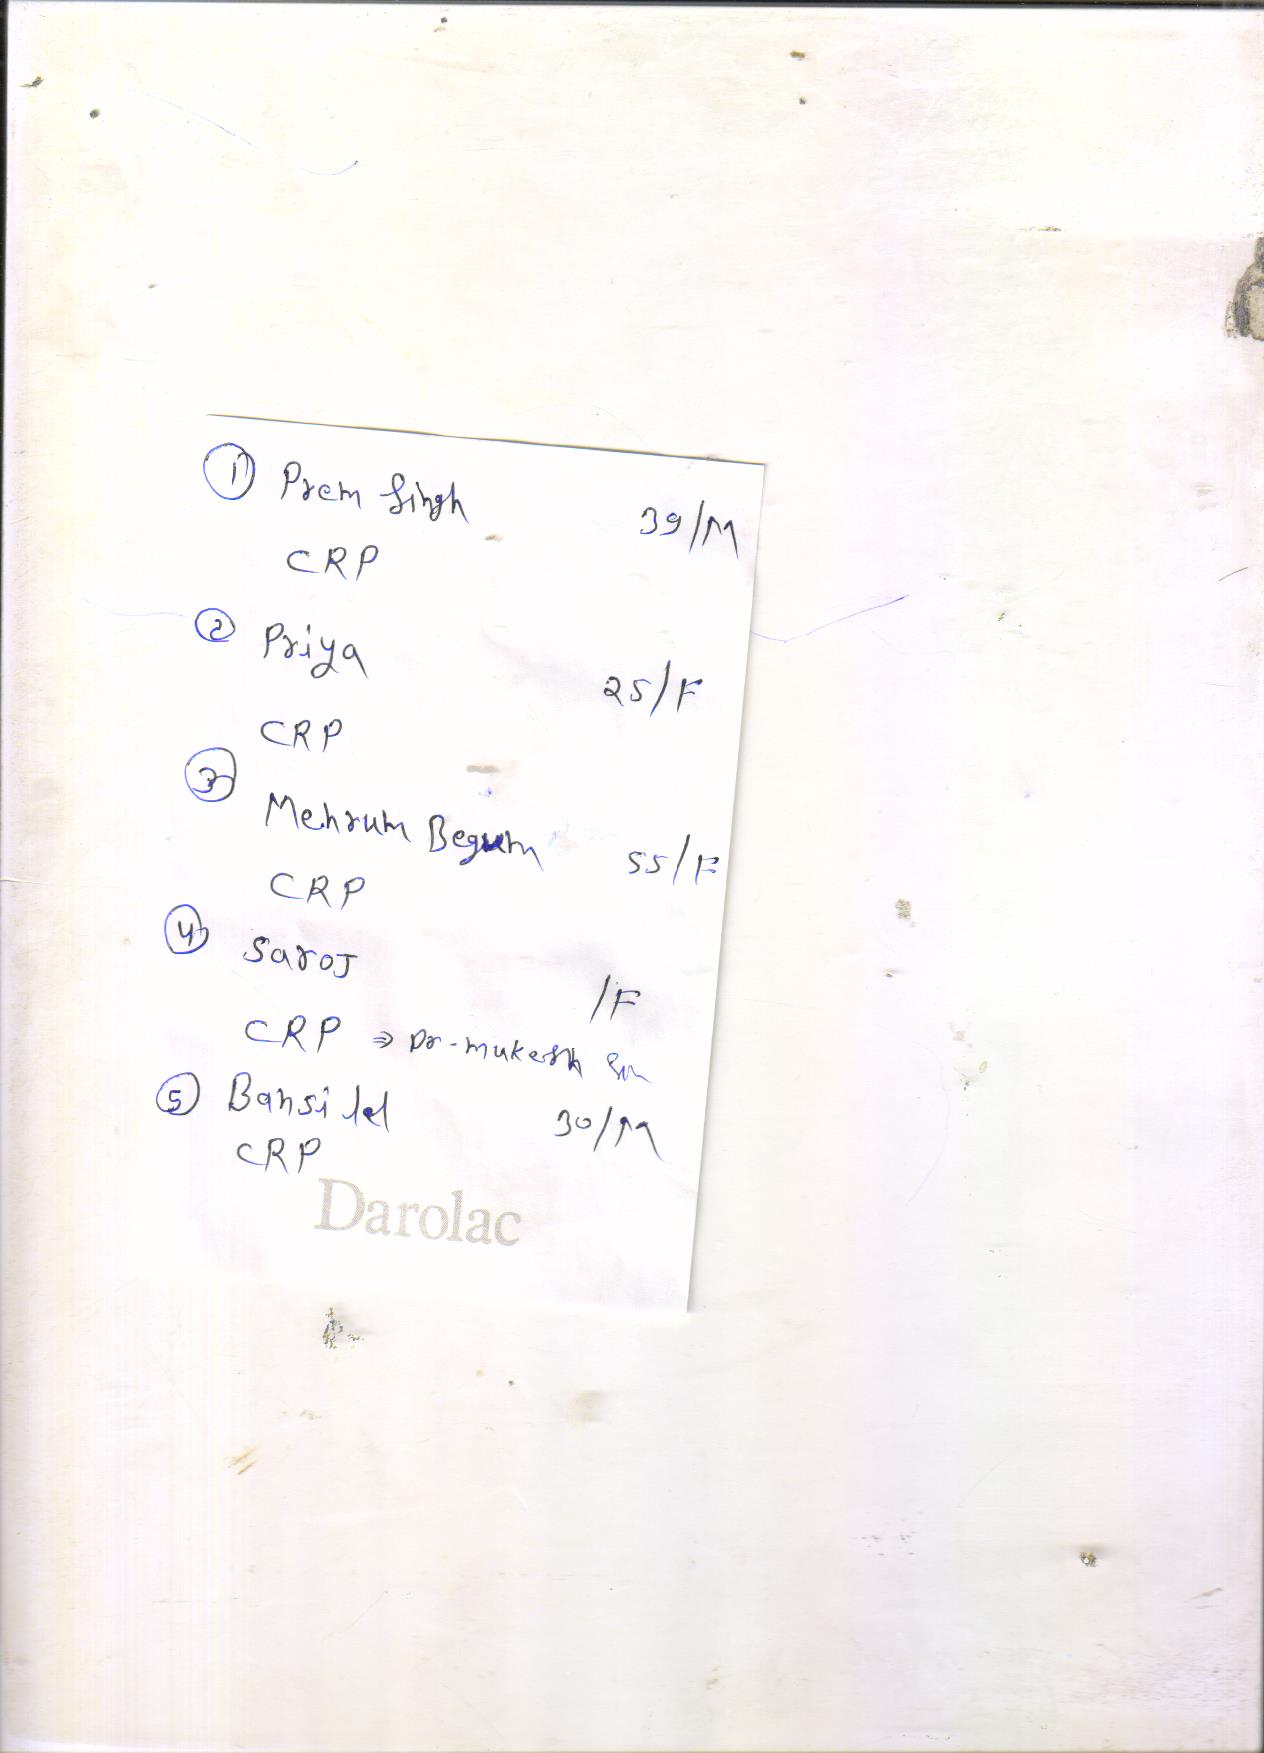 1 Prem Singh 39/M
CRP
2 Priya 25/F
CRP
3 Mehrum Begum 55/F
CRP
4 Saroj /F
CRP ⇒ Dr-mukesh
5 Bansi lal 30/M
CRP
Darolac